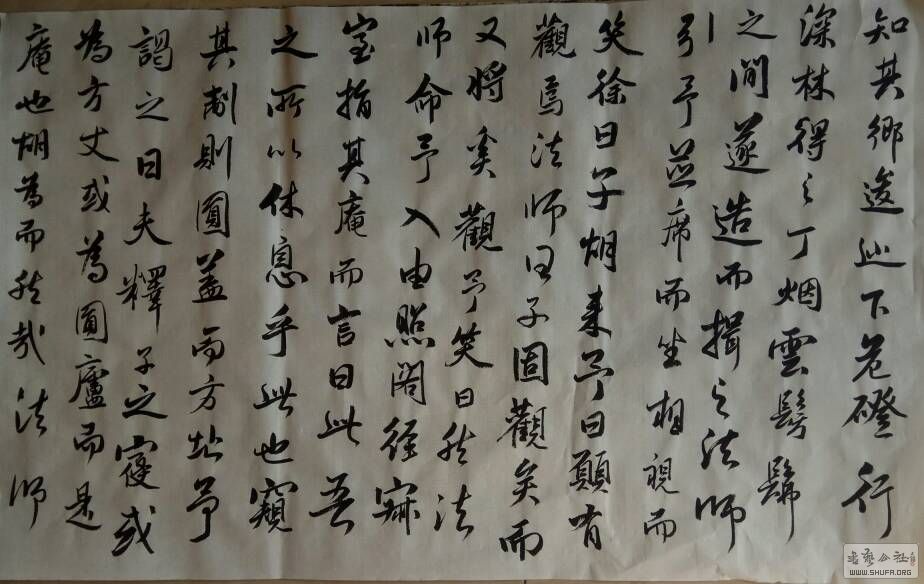 知其鄉逡巡下危磴行
深林得之于烟雲髣髴
之間遂造而揖之法師
引予並席而坐相視而
笑徐曰子胡來予曰願有
觀焉法師曰子固觀矣而
又將奚觀予笑曰然法
師命予入由照閣經寂
室指其庵而言曰此吾
之所以休息乎此也窺
其制則圓蓋而方址予
謁之曰夫釋子之寢或
為方丈或為圓廬而是
庵也胡為而然哉法師
書藝公社
WWW.SHUFA.ORG